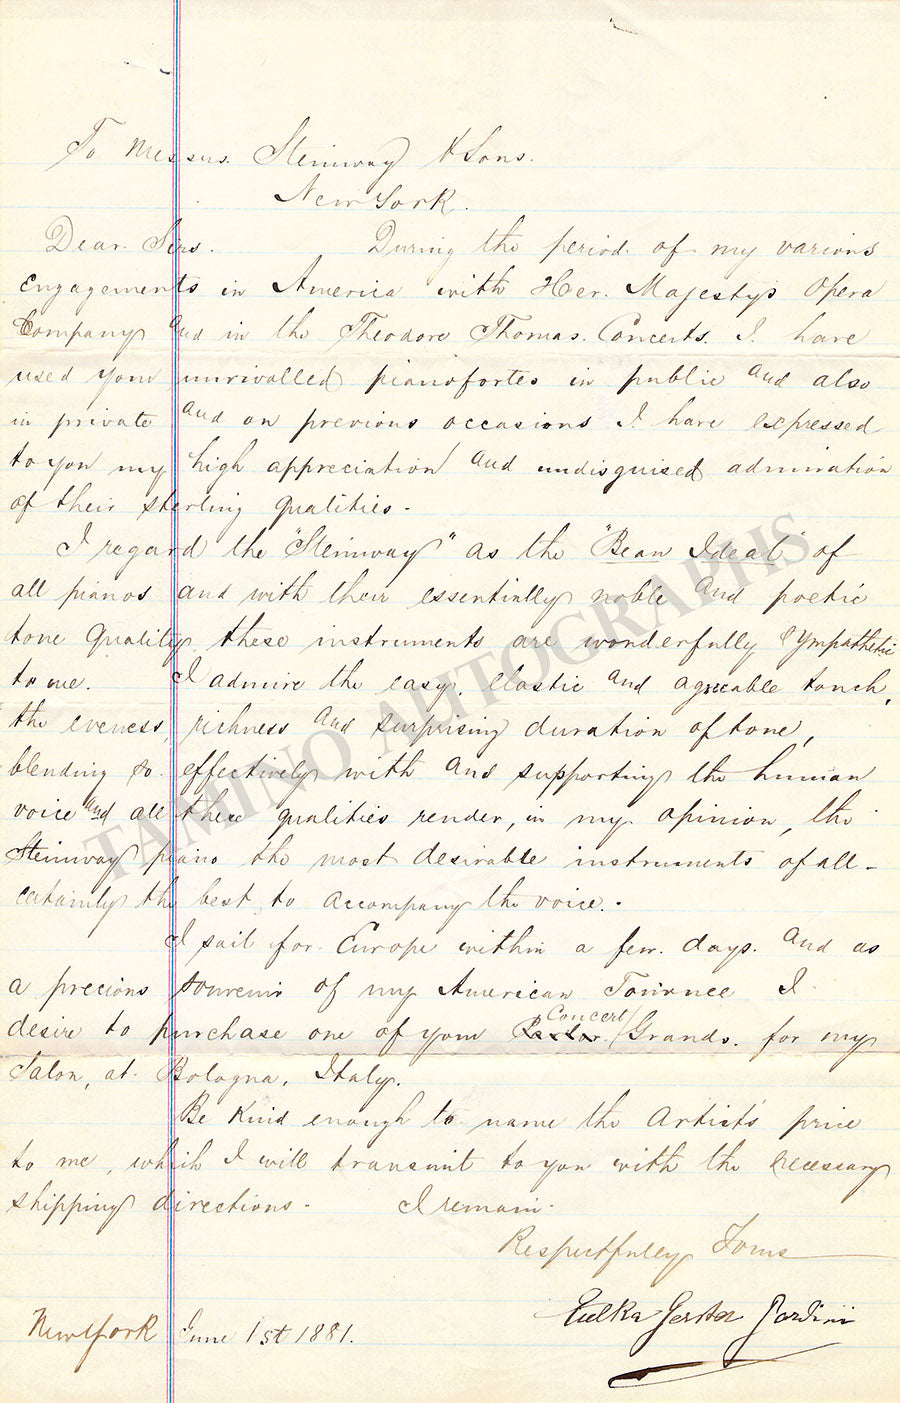 To Messrs. Steinway & Sons.
New York.
Dear Sirs. During the period of my various
engagements in America with Her Majestys Opera
Company and in the Theodore Thomas Concerts. I have
used your unrivalled pianofortes in public and also
in private and on previous occasions I have expressed
to you my high appreciation and undisguised admiration
of their sterling qualities -
I regard the "Steinway" as the "Beau Ideal" of
all pianos and with their essentially noble and poetic
tone quality these instruments are wonderfully sympathetic
to me. I admire the easy, elastic and agreeable touch,
the eveness, richness and surprising duration of tone,
blending so effectively with and supporting the human
voice and all these qualities render, in my opinion, the
Steinway piano the most desirable instruments of all -
certainly the best to accompany the voice. -
I sail for Europe within a few days. and as
a precious souvenir of my American Tournee I
desire to purchase one of your Parlor Concert Grands. for my
Salon, at Bologna, Italy.
Be kind enough to name the Artist's price
to me, which I will transmit to you with the necessary
shipping directions - I remain
Respectfully Yours
Etelka Gerster Gardini
New York June 1st 1881.
TAMINO AUTOGRAPHS